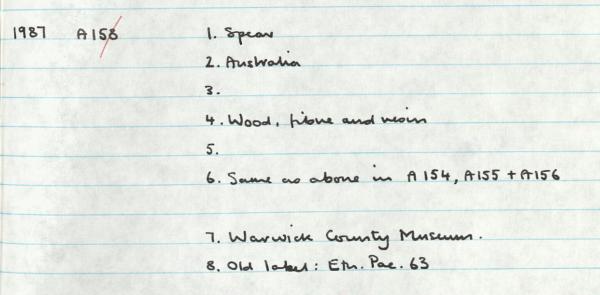 1987 A158 1. Spear
2. Australia
3.
4. Wood, fibre and resin
5.
6. Same as above in A154, A155 + A156
7. Warwick County Museum.
8. Old label: Eth. Pac. 63